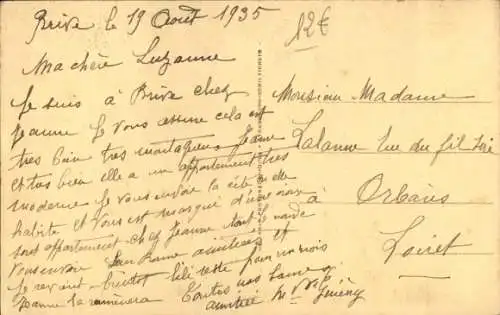 Brive le 19 Août 1935
12€
Ma chère Suzanne
Je suis à Brive chez
Jeanne Je vous assure cela est
tres bien tres montagneux Jeanne
et tres bien elle a un appartement tres
moderne Je vous envoie la cité ou elle
habite et vous est marqué d'une croix
sont appartement chez Jeanne tout le monde
vous envoie leur bonne amitiées et
Je revient bientôt Lili reste pour un mois
Jeanne la ramènera Toutes nos bonnes
amitiée
Monsieur Madame
Lalanne rue du fil
à Orléans
Loiret